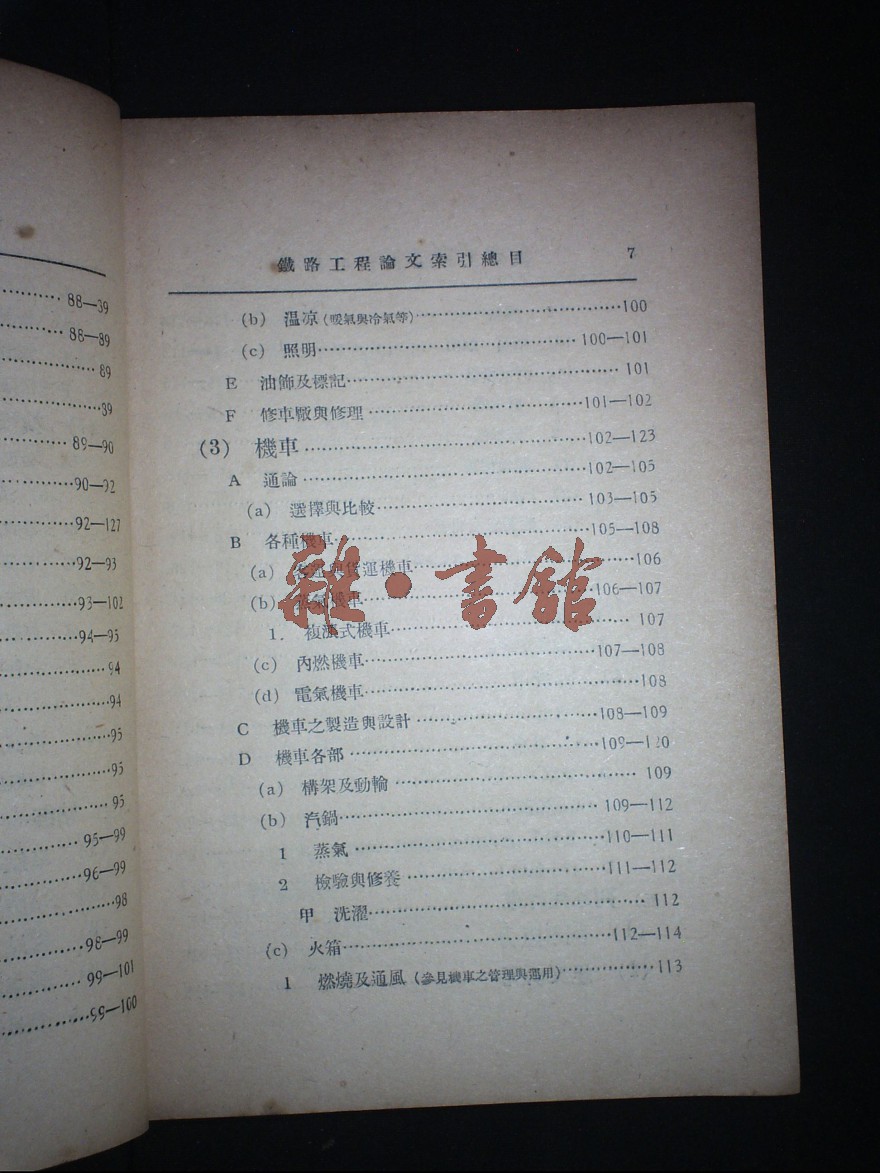 88—39
88—89
89
39
89—90
90—92
92—127
92—93
93—102
94—95
94
94
95
95
95
95—99
96—99
98
98—99
99—101
99—100
鐵路工程論文索引總目 7
(b) 温凉 (暖氣與冷氣等)⋯⋯100
(c) 照明⋯⋯100—101
E 油飾及標記⋯⋯101
F 修車廠與修理⋯⋯101—102
(3) 機車⋯⋯102—123
A 通論⋯⋯102—105
(a) 選擇與比較⋯⋯103—105
B 各種機車⋯⋯105—108
(a) 客運與貨運機車⋯⋯106
(b) 蒸氣機車⋯⋯106—107
1. 複漲式機車⋯⋯107
(c) 內燃機車⋯⋯107—108
(d) 電氣機車⋯⋯108
C 機車之製造與設計⋯⋯108—109
D 機車各部⋯⋯109—120
(a) 構架及動輪⋯⋯109
(b) 汽鍋⋯⋯109—112
1 蒸氣⋯⋯110—111
2 檢驗與修養⋯⋯111—112
甲 洗濯⋯⋯112
(c) 火箱⋯⋯112—114
1 燃燒及通風 (參見機車之管理與運用)⋯⋯113
雜·書館